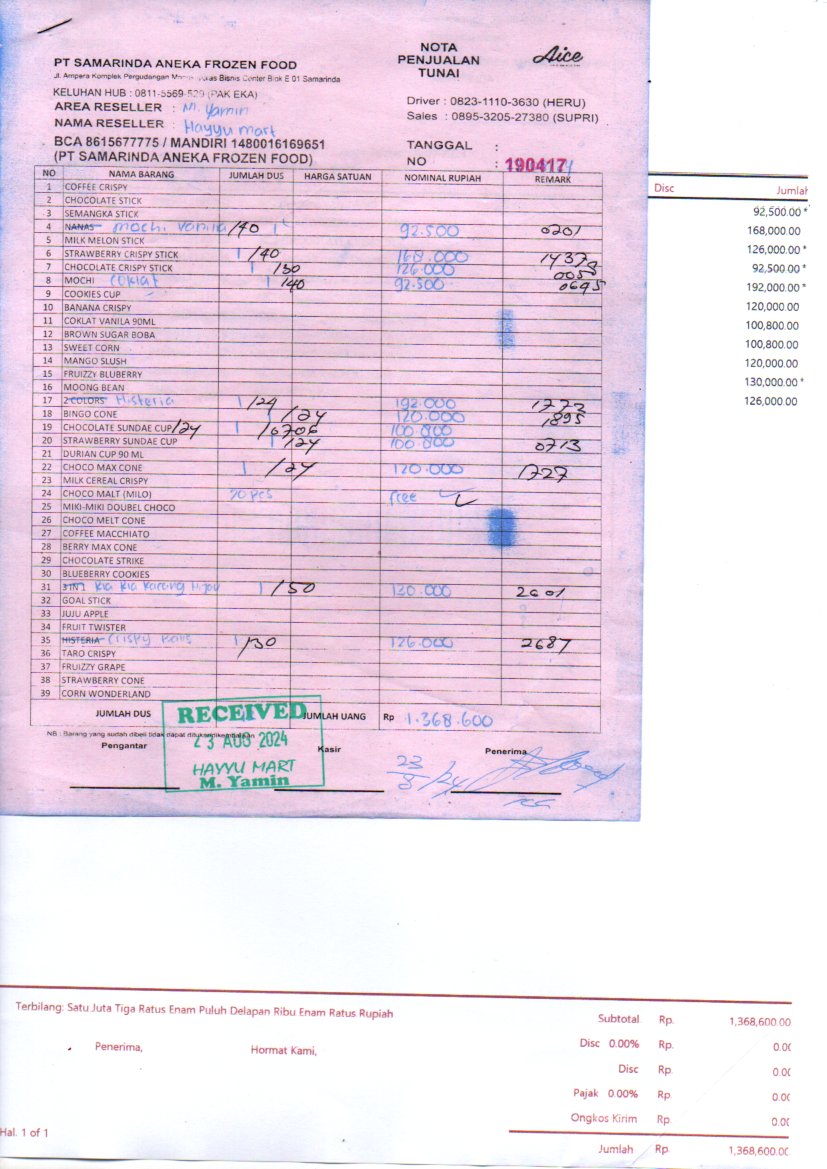 PT SAMARINDA ANEKA FROZEN FOOD
Jl. Ampera Komplek Pergudangan Bisnis Center Blok E 01 Samarinda
KELUHAN HUB : 0811-5569-529 (PAK EKA)
AREA RESELLER : M. Yamin
NAMA RESELLER : Hayyu mart
BCA 8615677775 / MANDIRI 1480016169651
(PT SAMARINDA ANEKA FROZEN FOOD)
NOTA
PENJUALAN
TUNAI
Aice
Driver : 0823-1110-3630 (HERU)
Sales : 0895-3205-27380 (SUPRI)
TANGGAL :
NO : 190417
NO NAMA BARANG JUMLAH DUS HARGA SATUAN NOMINAL RUPIAH REMARK
1 COFFEE CRISPY
2 CHOCOLATE STICK
3 SEMANGKA STICK
4 NANAS mochi vanila /40 1 92.500 0201
5 MILK MELON STICK
6 STRAWBERRY CRISPY STICK 1 /40 168.000 1437
7 CHOCOLATE CRISPY STICK 1 /30 126.000 0053
8 MOCHI Coklat 1 /40 92.500 0695
9 COOKIES CUP
10 BANANA CRISPY
11 COKLAT VANILA 90ML
12 BROWN SUGAR BOBA
13 SWEET CORN
14 MANGO SLUSH
15 FRUIZZY BLUBERRY
16 MOONG BEAN
17 2 COLORS Histeria 1 /24 192.000
18 BINGO CONE 1 /24 120.000 1895
19 CHOCOLATE SUNDAE CUP /24 1 /6706 100.800
20 STRAWBERRY SUNDAE CUP 1 /24 100.800 0713
21 DURIAN CUP 90 ML
22 CHOCO MAX CONE 1 /24 120.000 1727
23 MILK CEREAL CRISPY
24 CHOCO MALT (MILO) 20 pcs free
25 MIKI-MIKI DOUBEL CHOCO
26 CHOCO MELT CONE
27 COFFEE MACCHIATO
28 BERRY MAX CONE
29 CHOCOLATE STRIKE
30 BLUEBERRY COOKIES
31 3IN1 Kia Kia Kacang Hijau 1 /50 130.000 2601
32 GOAL STICK
33 JUJU APPLE
34 FRUIT TWISTER
35 HISTERIA Crispy Balls 1 /30 126.000 2687
36 TARO CRISPY
37 FRUIZZY GRAPE
38 STRAWBERRY CONE
39 CORN WONDERLAND
JUMLAH DUS JUMLAH UANG Rp 1.368.600
NB : Barang yang sudah dibeli tidak dapat
Pengantar Kasir Penerima
RECEIVED
23 AUG 2024
HAYYU MART
M. Yamin
23/8/24
Disc Jumlah
92,500.00 *
168,000.00
126,000.00 *
92,500.00 *
192,000.00 *
120,000.00
100,800.00
100,800.00
120,000.00
130,000.00 *
126,000.00
Terbilang: Satu Juta Tiga Ratus Enam Puluh Delapan Ribu Enam Ratus Rupiah
Penerima, Hormat Kami,
Subtotal Rp. 1,368,600.00
Disc 0.00% Rp. 0.00
Disc Rp. 0.00
Pajak 0.00% Rp. 0.00
Ongkos Kirim Rp. 0.00
Hal. 1 of 1
Jumlah Rp. 1,368,600.00